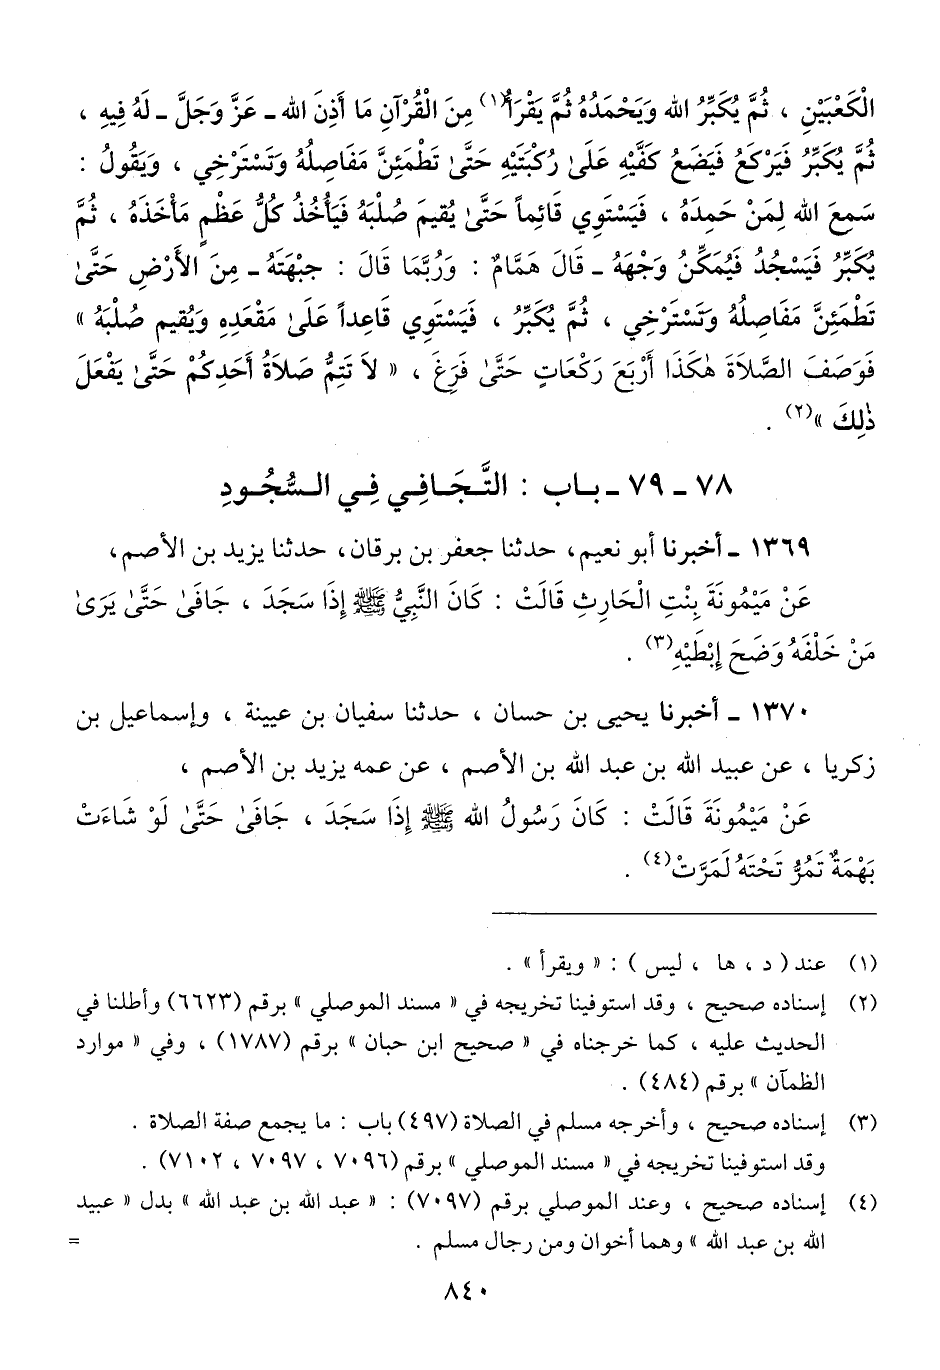 الْكَعْبَيْنِ ، ثُمَّ يُكَبِّرُ الله وَيَحْمَدُهُ ثُمَّ يَقْرَأُ(١) مِنَ الْقُرْآنِ مَا أَذِنَ الله ـ عَزَّ وَجَلَّ ـ لَهُ فِيهِ ،
ثُمَّ يُكَبِّرُ فَيَرْكَعُ فَيَضَعُ كَفَّيْهِ عَلَىٰ رُكْبَتَيْهِ حَتَّىٰ تَطْمَئِنَّ مَفَاصِلُهُ وَتَسْتَرْخِي ، وَيَقُولُ :
سَمِعَ الله لِمَنْ حَمِدَهُ ، فَيَسْتَوِي قَائِماً حَتَّىٰ يُقِيمَ صُلْبَهُ فَيَأْخُذُ كُلُّ عَظْمٍ مَأْخَذَهُ ، ثُمَّ
يُكَبِّرُ فَيَسْجُدُ فَيُمَكِّنُ وَجْهَهُ ـ قَالَ هَمَّامٌ : وَرُبَّمَا قَالَ : جبْهَتَهُ ـ مِنَ الأَرْضِ حَتَّىٰ
تَطْمَئِنَّ مَفَاصِلُهُ وَتَسْتَرْخِي ، ثُمَّ يُكَبِّرُ ، فَيَسْتَوِي قَاعِداً عَلَىٰ مَقْعَدِهِ وَيُقيم صُلْبَهُ »
فَوَصَفَ الصَّلاَةَ هٰكَذَا أَرْبَعَ رَكْعَاتٍ حَتَّىٰ فَرَغَ ، « لاَ تَتِمُّ صَلاَةُ أَحَدِكُمْ حَتَّىٰ يَفْعَلَ
ذٰلِكَ »(٢) .
٧٨ ـ ٧٩ ـ بـاب : التَّجَافِي فِي السُّجُودِ
١٣٦٩ ـ أخبرنا أبو نعيم، حدثنا جعفر بن برقان، حدثنا يزيد بن الأصم،
عَنْ مَيْمُونَةَ بِنْتِ الْحَارِثِ قَالَتْ : كَانَ النَّبِيُّ ﷺ إِذَا سَجَدَ ، جَافَىٰ حَتَّىٰ يَرَىٰ
مَنْ خَلْفَهُ وَضَحَ إِبْطَيْهِ(٣) .
١٣٧٠ ـ أخبرنا يحيى بن حسان ، حدثنا سفيان بن عيينة ، وإسماعيل بن
زكريا ، عن عبيد الله بن عبد الله بن الأصم ، عن عمه يزيد بن الأصم ،
عَنْ مَيْمُونَةَ قَالَتْ : كَانَ رَسُولُ الله ﷺ إِذَا سَجَدَ ، جَافَىٰ حَتَّىٰ لَوْ شَاءَتْ
بَهْمَةٌ تَمُرُّ تَحْتَهُ لَمَرَّتْ(٤) .
(١) عند ( د ، ها ، ليس ) : « ويقرأ » .
(٢) إسناده صحيح ، وقد استوفينا تخريجه في « مسند الموصلي » برقم (٦٦٢٣) وأطلنا في
الحديث عليه ، كما خرجناه في « صحيح ابن حبان » برقم (١٧٨٧) ، وفي « موارد
الظمآن » برقم (٤٨٤) .
(٣) إسناده صحيح ، وأخرجه مسلم في الصلاة (٤٩٧) باب : ما يجمع صفة الصلاة .
وقد استوفينا تخريجه في « مسند الموصلي » برقم (٧٠٩٦ ، ٧٠٩٧ ، ٧١٠٢) .
(٤) إسناده صحيح ، وعند الموصلي برقم (٧٠٩٧) : « عبد الله بن عبد الله » بدل « عبيد
الله بن عبد الله » وهما أخوان ومن رجال مسلم . =
٨٤٠